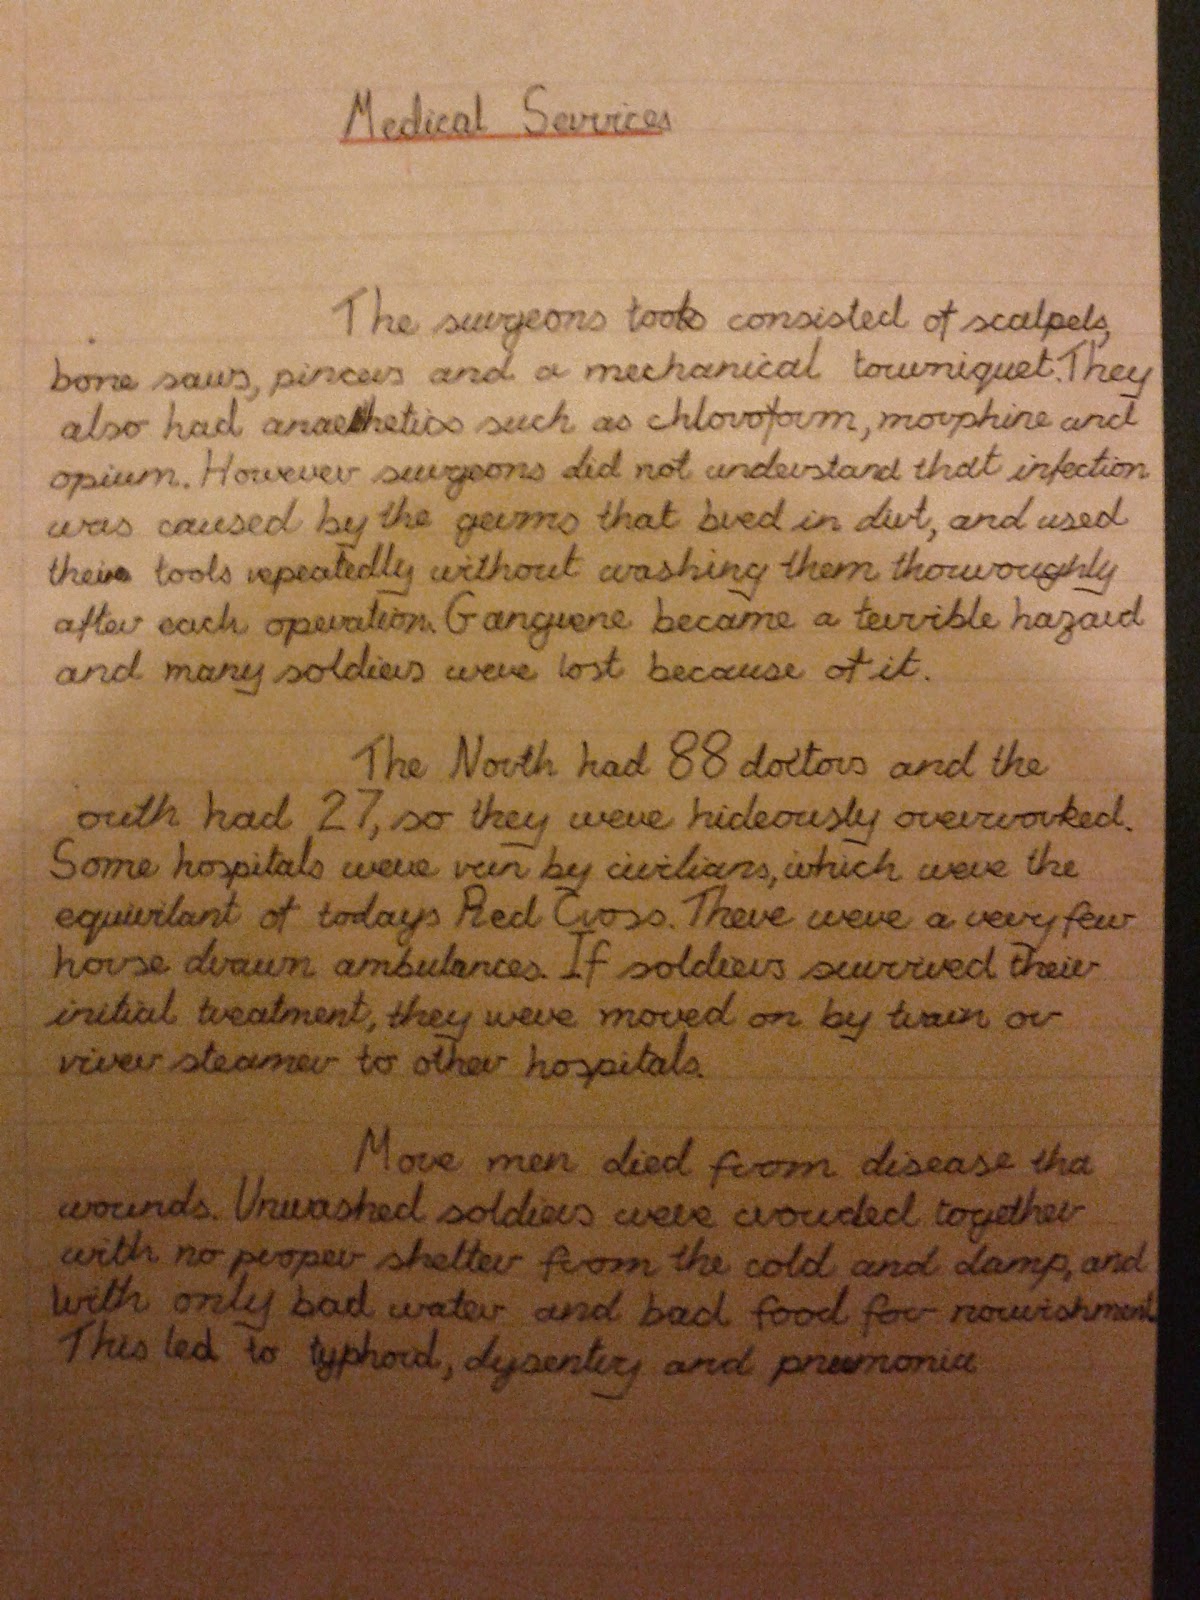 Medical Services
The surgeons tools consisted of scalpels,
bone saws, pincers and a mechanical tourniquet. They
also had anaethetics such as chloroform, morphine and
opium. However surgeons did not understand that infection
was caused by the germs that bred in dirt, and used
their tools repeatedly without washing them thoroughly
after each operation. Gangrene became a terrible hazard
and many soldiers were lost because of it.
The North had 88 doctors and the
outh had 27, so they were hideously overworked.
Some hospitals were run by civilians, which were the
equivilant of todays Red Cross. There were a very few
horse drawn ambulances. If soldiers survived their
initial treatment, they were moved on by train or
river steamer to other hospitals.
More men died from disease tha
wounds. Unwashed soldiers were crowded together
with no proper shelter from the cold and damp, and
with only bad water and bad food for nourishment.
This led to typhoid, dysentry and pneumonia